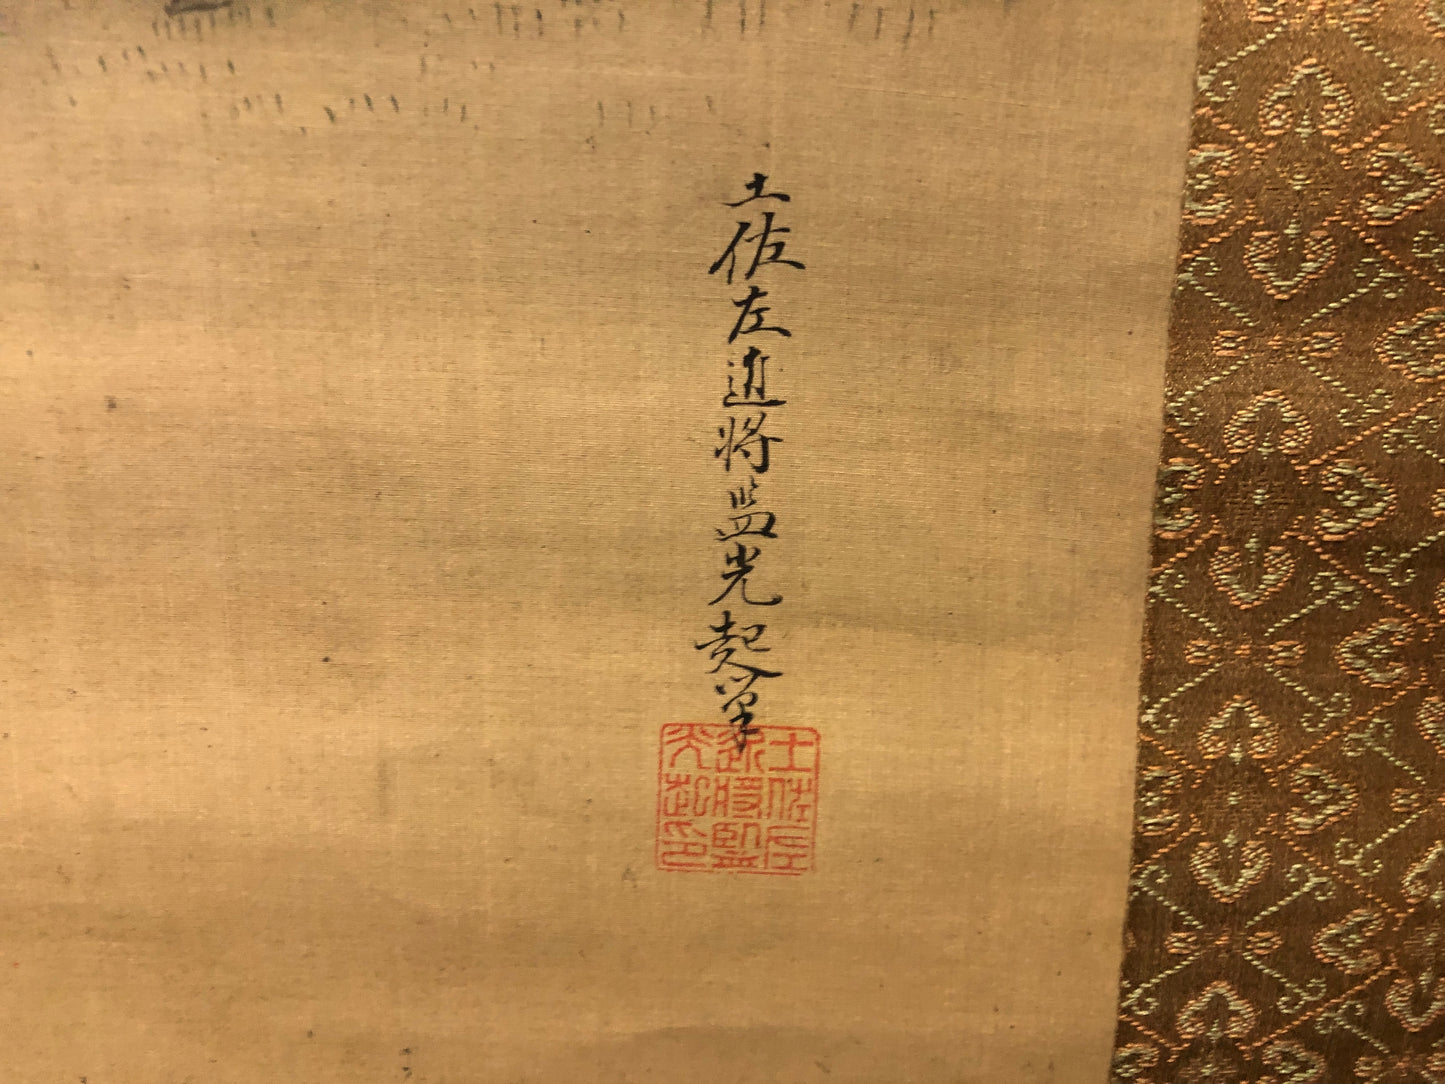 土佐左近将監光起筆
土佐左
近將監
光起印